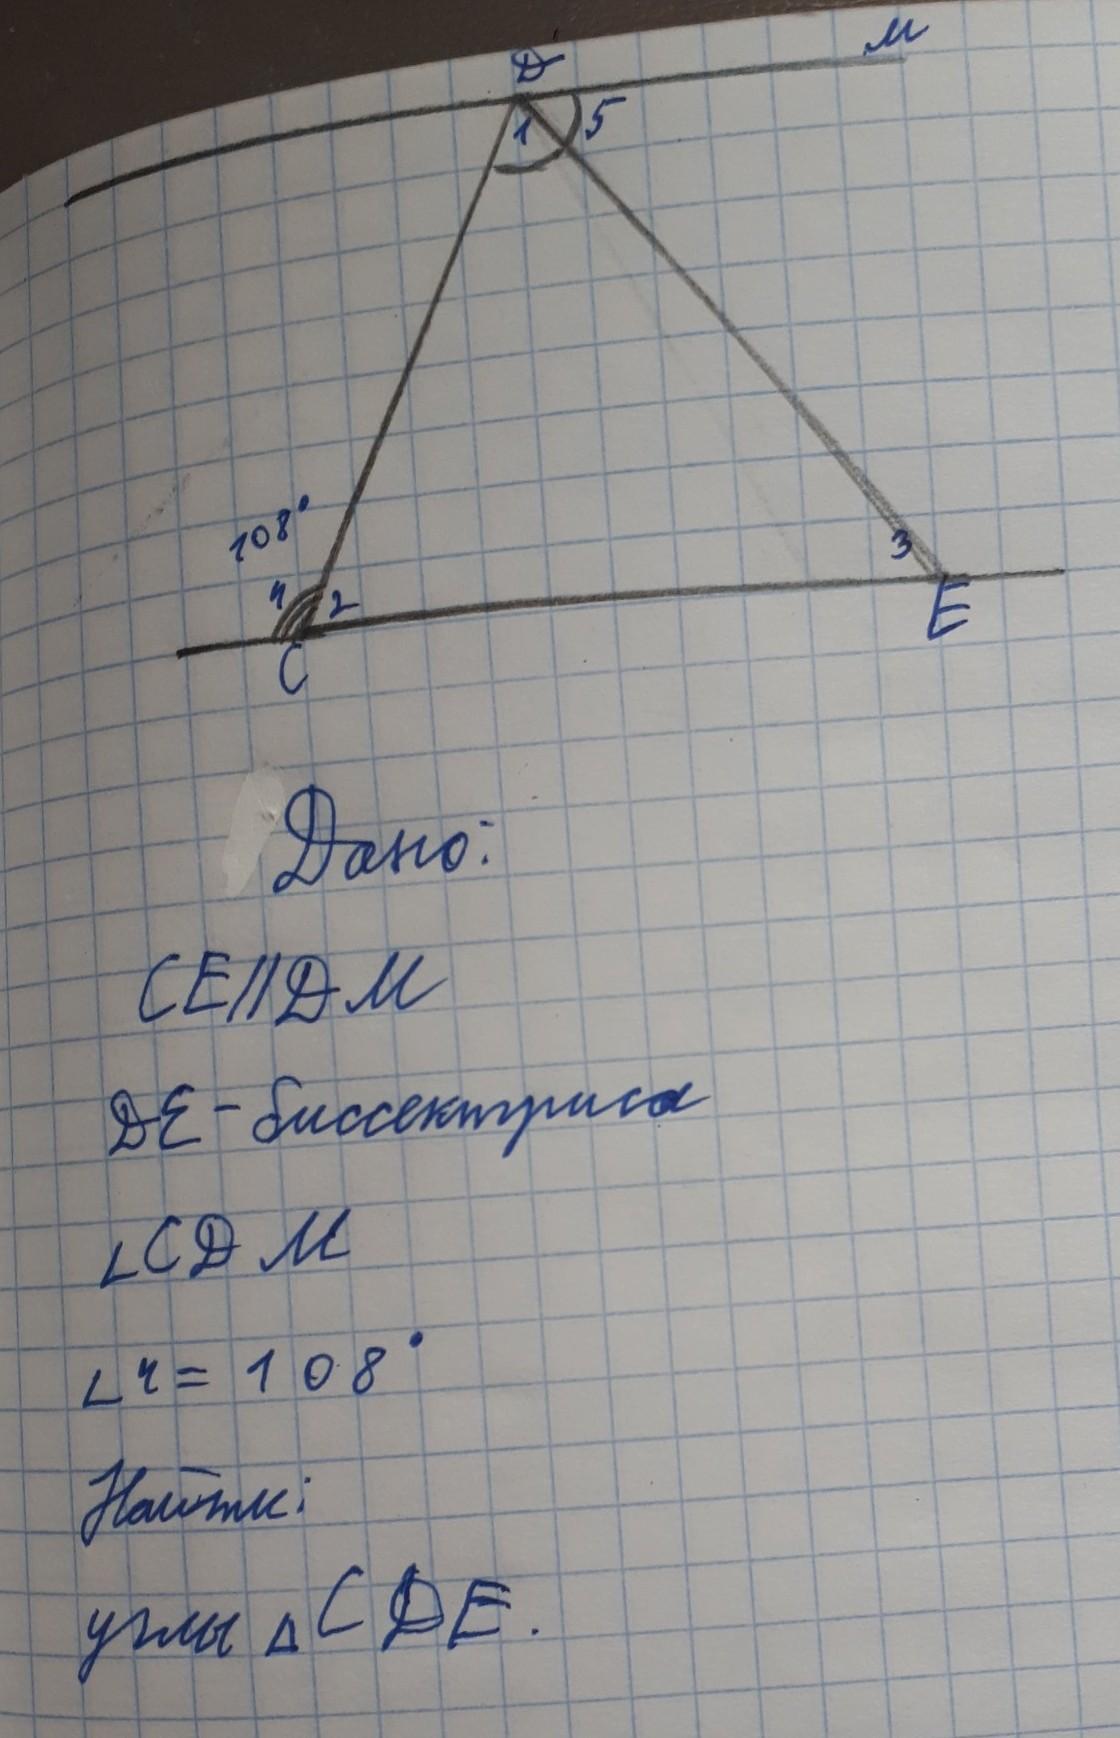 D
M
1
5
108°
4
2
3
C
E
Дано:
CE||DM
DE - биссектриса
∠CDM
∠4 = 108°
Найти:
углы ΔCDE.